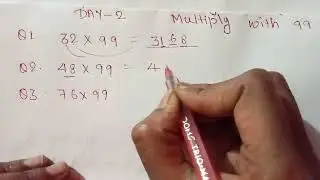 DAY-2 Multiply with 99
Q1 32 × 99 = 3168
Q2. 48 × 99 = 4
Q3. 76 × 99